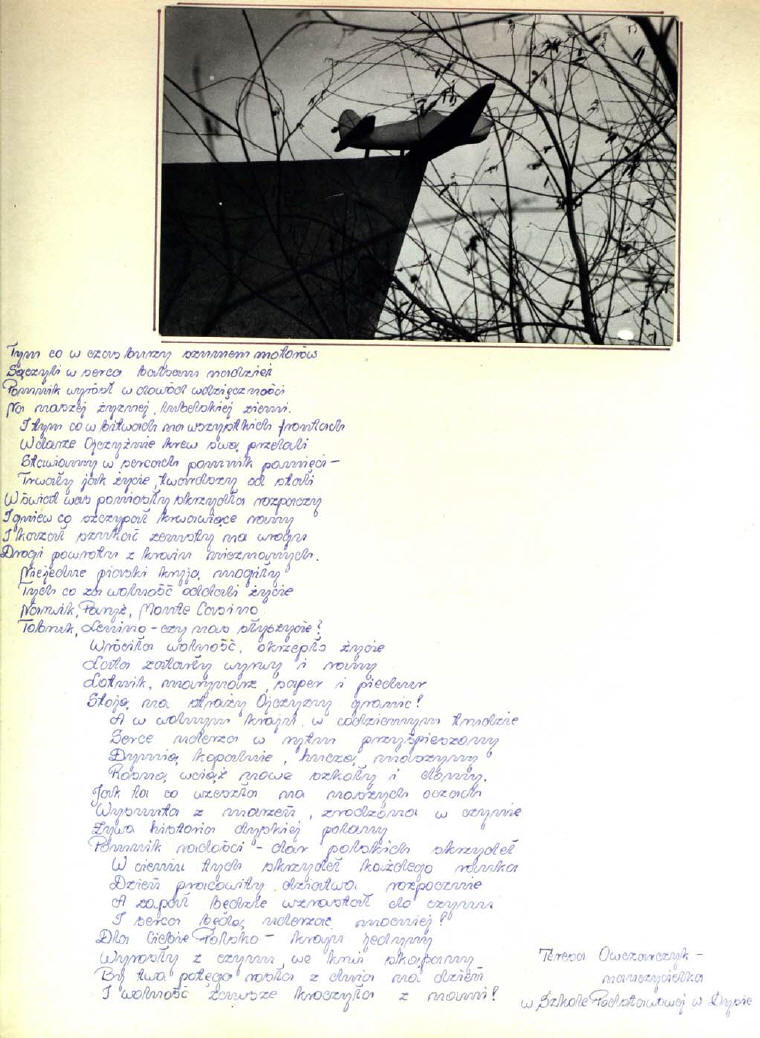 Tym co w czas burzy szumem motorów
Sączyli w serca balsam nadziei
Pomnik wyrósł w dowód wdzięczności
Na naszej żyznej, lubelskiej ziemi.
I tym co w bitwach na wszystkich frontach
W darze Ojczyźnie krew swą przelali
Stawiamy w sercach pomnik pamięci -
Trwały jak życie, twardszy od stali
W świat was poniosły skrzydła rozpaczy
I gniew co szczypał krwawiące rany
I kazał szukać zemsty na wrogu
Drogi powrotu z krain nieznanych.
Niejedne piaski kryją mogiły
Tych co za wolność oddali życie
Narwik, Paryż, Monte Cassino
Tobruk, Lenino - czy nas słyszycie?
Wróciła wolność, okrzepło życie
Lata zatarły wyrwy i rany
Lotnik, marynarz, saper i piechur
Stoją na straży Ojczyzny granic!
A w wolnym kraju, w codziennym trudzie
Serce uderza w rytm przyśpieszony
Dymią kopalnie, huczą maszyny
Rosną wciąż nowe szkoły i domy.
Jak ta co wzeszła na naszych oczach
Wysnuta z marzeń, zrodzona w czynie
Żywa historia dyskiej polany
Pomnik radości - dar polskich skrzydeł
W cieniu tych skrzydeł każdego ranka
Dzień pracowity dziatwa rozpocznie
A zapał będzie wzrastał do czynu
I serca będą uderzać mocniej!
Dla Ciebie Polsko - kraju jedyny
Wyrosły z czynu, we krwi skąpany
By twa potęga rosła z dnia na dzień
I wolność zawsze kroczyła z nami!
Teresa Owczarczyk -
nauczycielka
w Szkole Podstawowej w Dysie